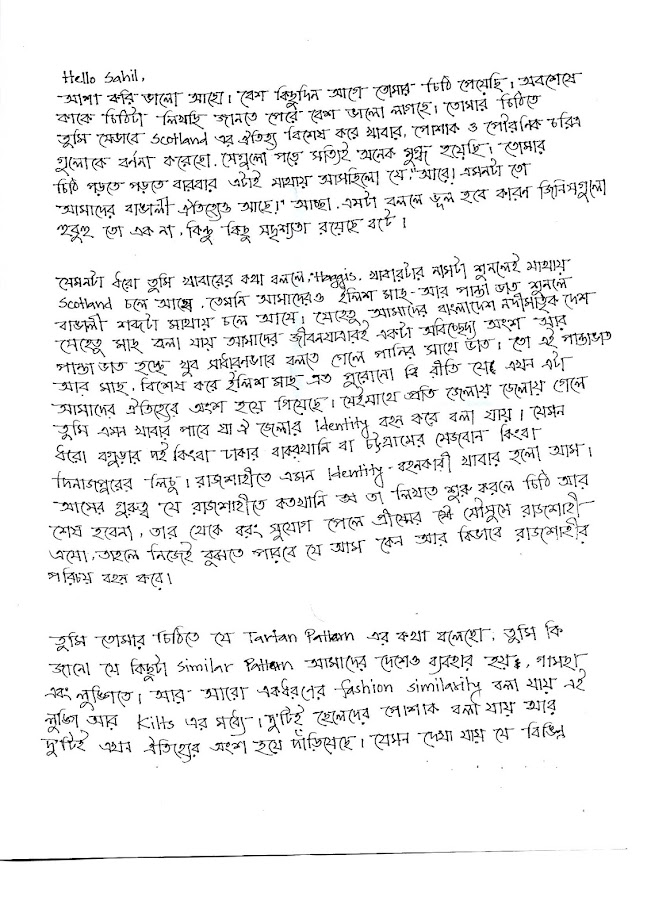 Hello Sahil,
আশা করি ভালো আছো। বেশ কিছুদিন আগে তোমার চিঠি পেয়েছি। অবশেষে
কাকে চিঠিটা লিখছি জানতে পেরে বেশ ভালো লাগছে। তোমার চিঠিতে
তুমি যেভাবে Scotland এর ঐতিহ্য বিশেষ করে খাবার, পোশাক ও পৌরনিক চরিত্র
গুলোকে বর্ননা করেছো, সেগুলো পড়ে সত্যিই অনেক মুগ্ধ হয়েছি। তোমার
চিঠি পড়তে পড়তে বারবার এটাই মাথায় আসছিলো যে, "আরে! এমনটা তো
আমাদের বাঙালী ঐতিহ্যেও আছে।" আচ্ছা, এমটা বললে ভুল হবে কারন জিনিসগুলো
হুবুহু তো এক না, কিন্তু কিছু সদৃশ্যতা রয়েছে বটে।
যেমনটা ধরো তুমি খাবারের কথা বললে, Haggis, খাবারটার নামটা শুনলেই মাথায়
Scotland চলে আসে, তেমনি আমাদেরও ইলিশ মাছ আর পান্তা ভাত শুনলে
বাঙালী শব্দটা মাথায় চলে আসে। যেহেতু আমাদের বাংলাদেশ নদীমাতৃক দেশ
সেহেতু মাছ বলা যায় আমাদের জীবনযাত্রারই একটা অবিচ্ছেদ্য অংশ আর
পান্তা ভাত হচ্ছে খুব সাধারনভাবে বলতে গেলে পানির সাথে ভাত। তো এই পান্তাভাত
আর মাছ, বিশেষ করে ইলিশ মাছ এত পুরোনো রীতি যে এখন এটা
আমাদের ঐতিহ্যের অংশ হয়ে গিয়েছে। সেইসাথে প্রতি জেলায় জেলায় গেলে
তুমি এমন খাবার পাবে যা ঐ জেলার Identity বহন করে বলা যায়। যেমন
ধরো বগুড়ার দই কিংবা ঢাকার বাকরখানি বা চট্টগ্রামের মেজবান কিংবা
দিনাজপুরের লিচু। রাজশাহীতে এমন Identity-বহনকারী খাবার হলো আম।
আমের গুরুত্ব যে রাজশাহীতে কতখানি তা লিখতে শুরু করলে চিঠি আর
শেষ হবেনা, তার থেকে বরং সুযোগ পেলে গ্রীষ্মের মৌসুমে রাজশাহী
এসো, তাহলে নিজেই বুঝতে পারবে যে আম কেন আর কিভাবে রাজশাহীর
পরিচয় বহন করে।
তুমি তোমার চিঠিতে যে Tartan Pattern এর কথা বলেছো, তুমি কি
জানো যে কিছুটা similar Pattern আমাদের দেশেও ব্যবহার হয়, গামছা
এবং লুঙ্গিতে। আর আরো একধরণের fashion similarity বলা যায় এই
লুঙ্গি আর Kilts এর মধ্যে। দু'টিই ছেলেদের পোশাক বলা যায় আর
দু'টিই এখন ঐতিহ্যের অংশ হয়ে দাঁড়িয়েছে। যেমন দেখা যায় যে বিভিন্ন